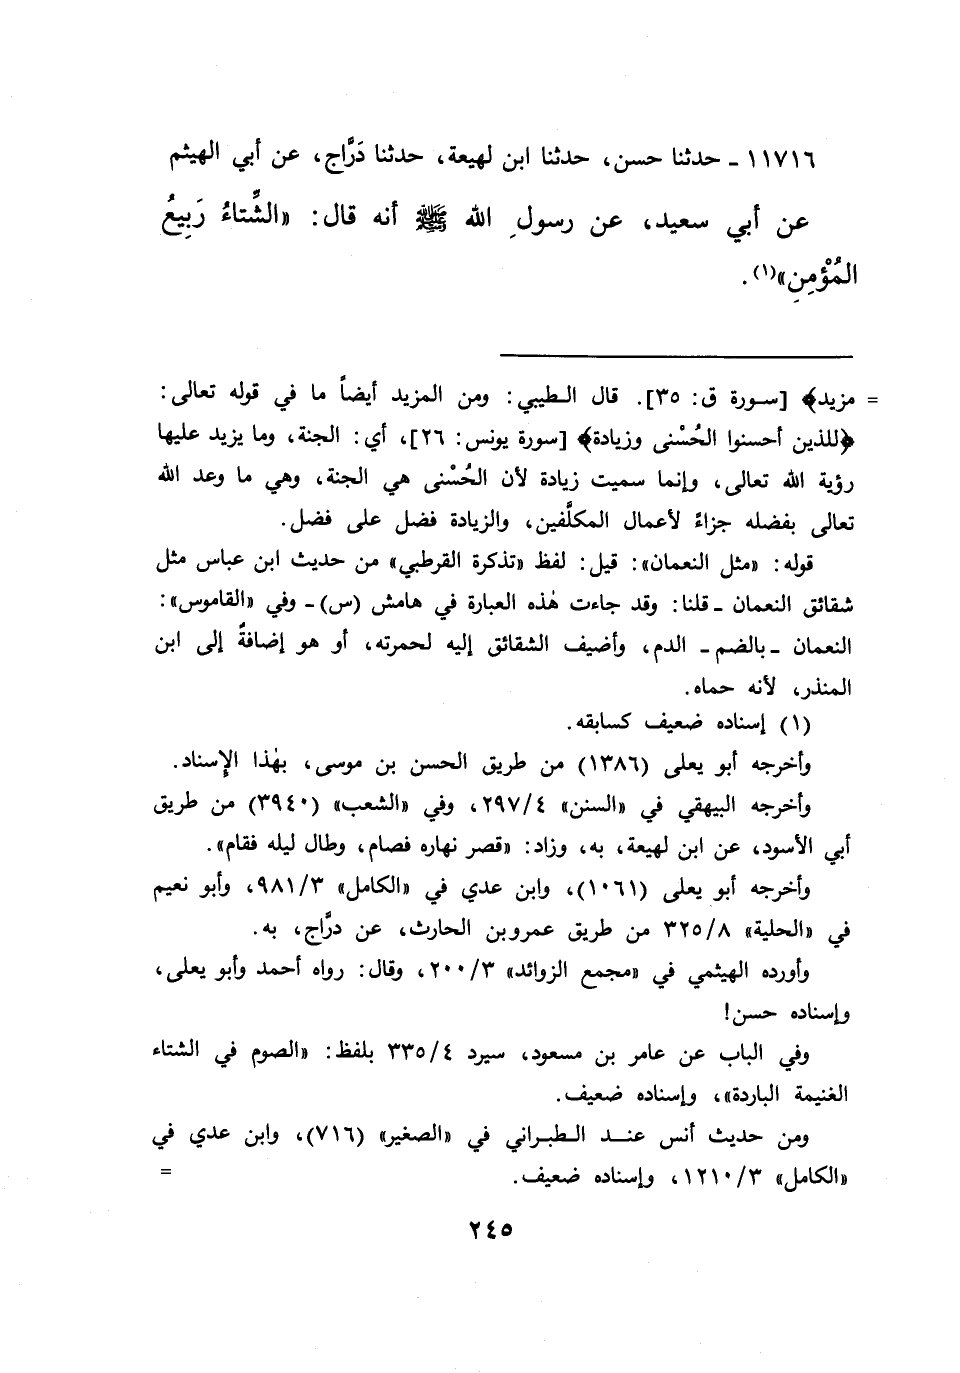 ١١٧١٦ ـ حدثنا حسن، حدثنا ابن لهيعة، حدثنا دَرَّاج، عن أبي الهيثم
عن أبي سعيد، عن رسولِ الله ﷺ أنه قال: «الشِّتاءُ رَبِيعُ
المُؤْمِنِ»(١).
= مزيد﴾ [سورة ق: ٣٥]. قال الطيبي: ومن المزيد أيضاً ما في قوله تعالى:
﴿للذين أحسنوا الحُسْنى وزيادة﴾ [سورة يونس: ٢٦]، أي: الجنة، وما يزيد عليها
رؤية الله تعالى، وإنما سميت زيادة لأن الحُسْنى هي الجنة، وهي ما وعد الله
تعالى بفضله جزاءً لأعمال المكلَّفين، والزيادة فضل على فضل.
قوله: «مثل النعمان»: قيل: لفظ «تذكرة القرطبي» من حديث ابن عباس مثل
شقائق النعمان ـ قلنا: وقد جاءت هٰذه العبارة في هامش (س) ـ وفي «القاموس»:
النعمان ـ بالضم ـ الدم، وأضيف الشقائق إليه لحمرته، أو هو إضافةٌ إلى ابن
المنذر، لأنه حماه.
(١) إسناده ضعيف كسابقه.
وأخرجه أبو يعلى (١٣٨٦) من طريق الحسن بن موسى، بهٰذا الإسناد.
وأخرجه البيهقي في «السنن» ٢٩٧/٤، وفي «الشعب» (٣٩٤٠) من طريق
أبي الأسود، عن ابن لهيعة، به، وزاد: «قصر نهاره فصام، وطال ليله فقام».
وأخرجه أبو يعلى (١٠٦١)، وابن عدي في «الكامل» ٩٨١/٣، وأبو نعيم
في «الحلية» ٣٢٥/٨ من طريق عمرو بن الحارث، عن درَّاج، به.
وأورده الهيثمي في «مجمع الزوائد» ٢٠٠/٣، وقال: رواه أحمد وأبو يعلى،
وإسناده حسن!
وفي الباب عن عامر بن مسعود، سيرد ٣٣٥/٤ بلفظ: «الصوم في الشتاء
الغنيمة الباردة»، وإسناده ضعيف.
ومن حديث أنس عند الطبراني في «الصغير» (٧١٦)، وابن عدي في
«الكامل» ١٢١٠/٣، وإسناده ضعيف. =
٢٤٥